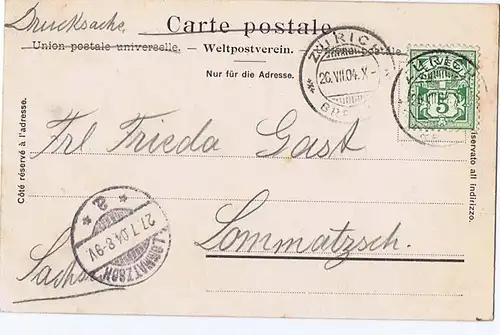 Drucksache
Carte postale.
Union postale universelle. – Weltpostverein. –
Nur für die Adresse.
Côté réservé à l'adresse.
riservato all indirizzo.
ZÜRICH
26.VII.04.X-
5
Frl Frieda Gast
Lommatzsch.
Sachsen
LOMMATZSCH
27.7.04.8-9V.
* a *